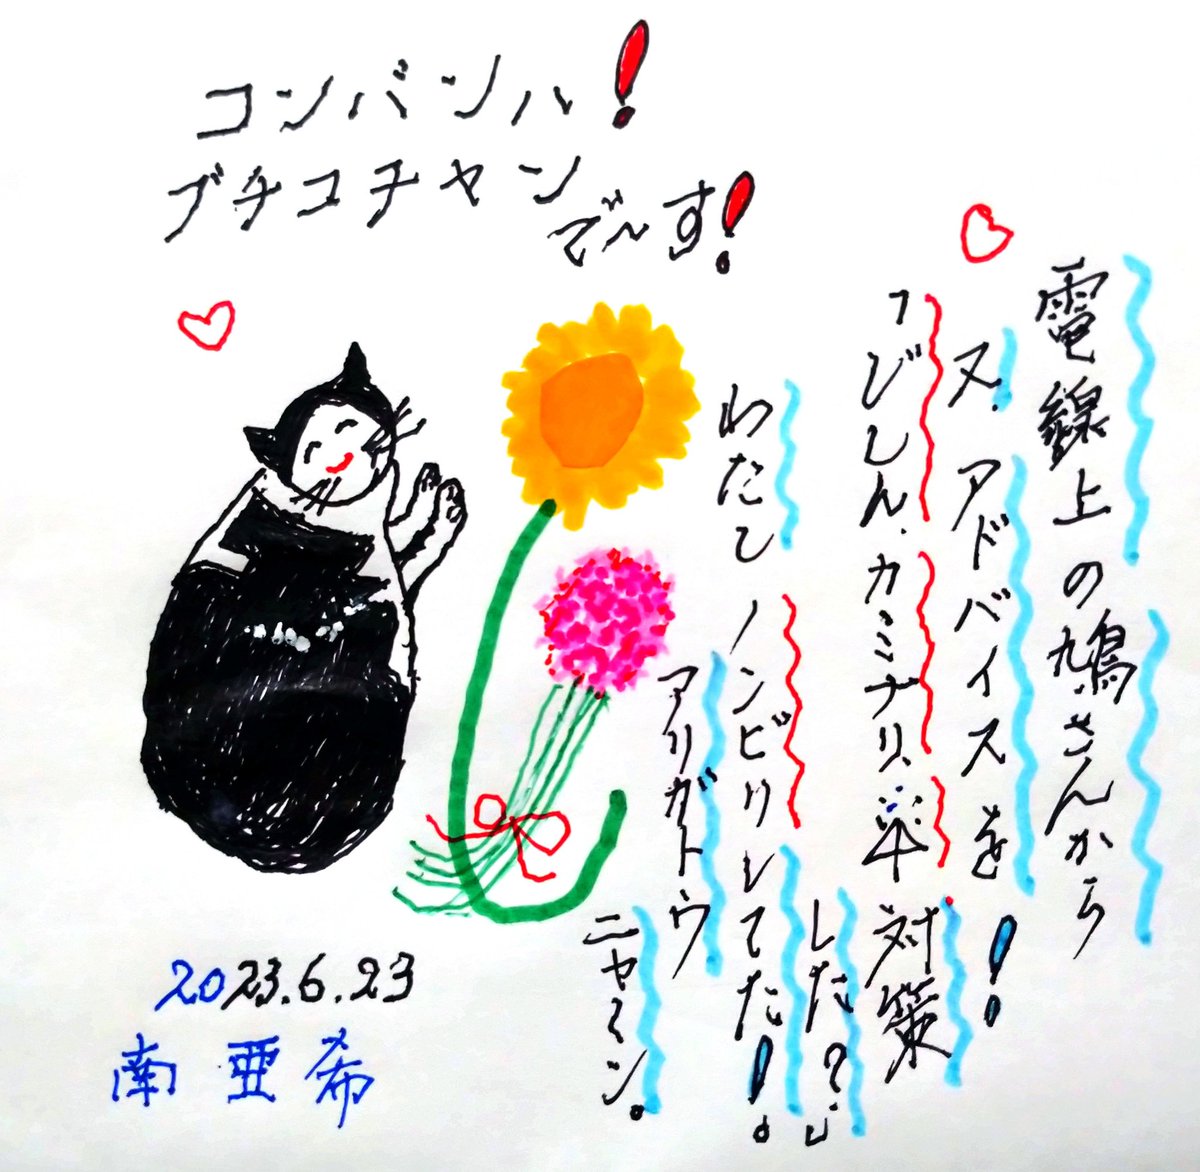 コンバンハ!
ブチコチャン
で〜す!
電線上の鳩さんから
又、アドバイスを!
「じしん、カミナリ、傘対策
した?」
わたし ノンビリしてた!。
アリガトウ
ニャ〜ン。
2023.6.23
南亜希